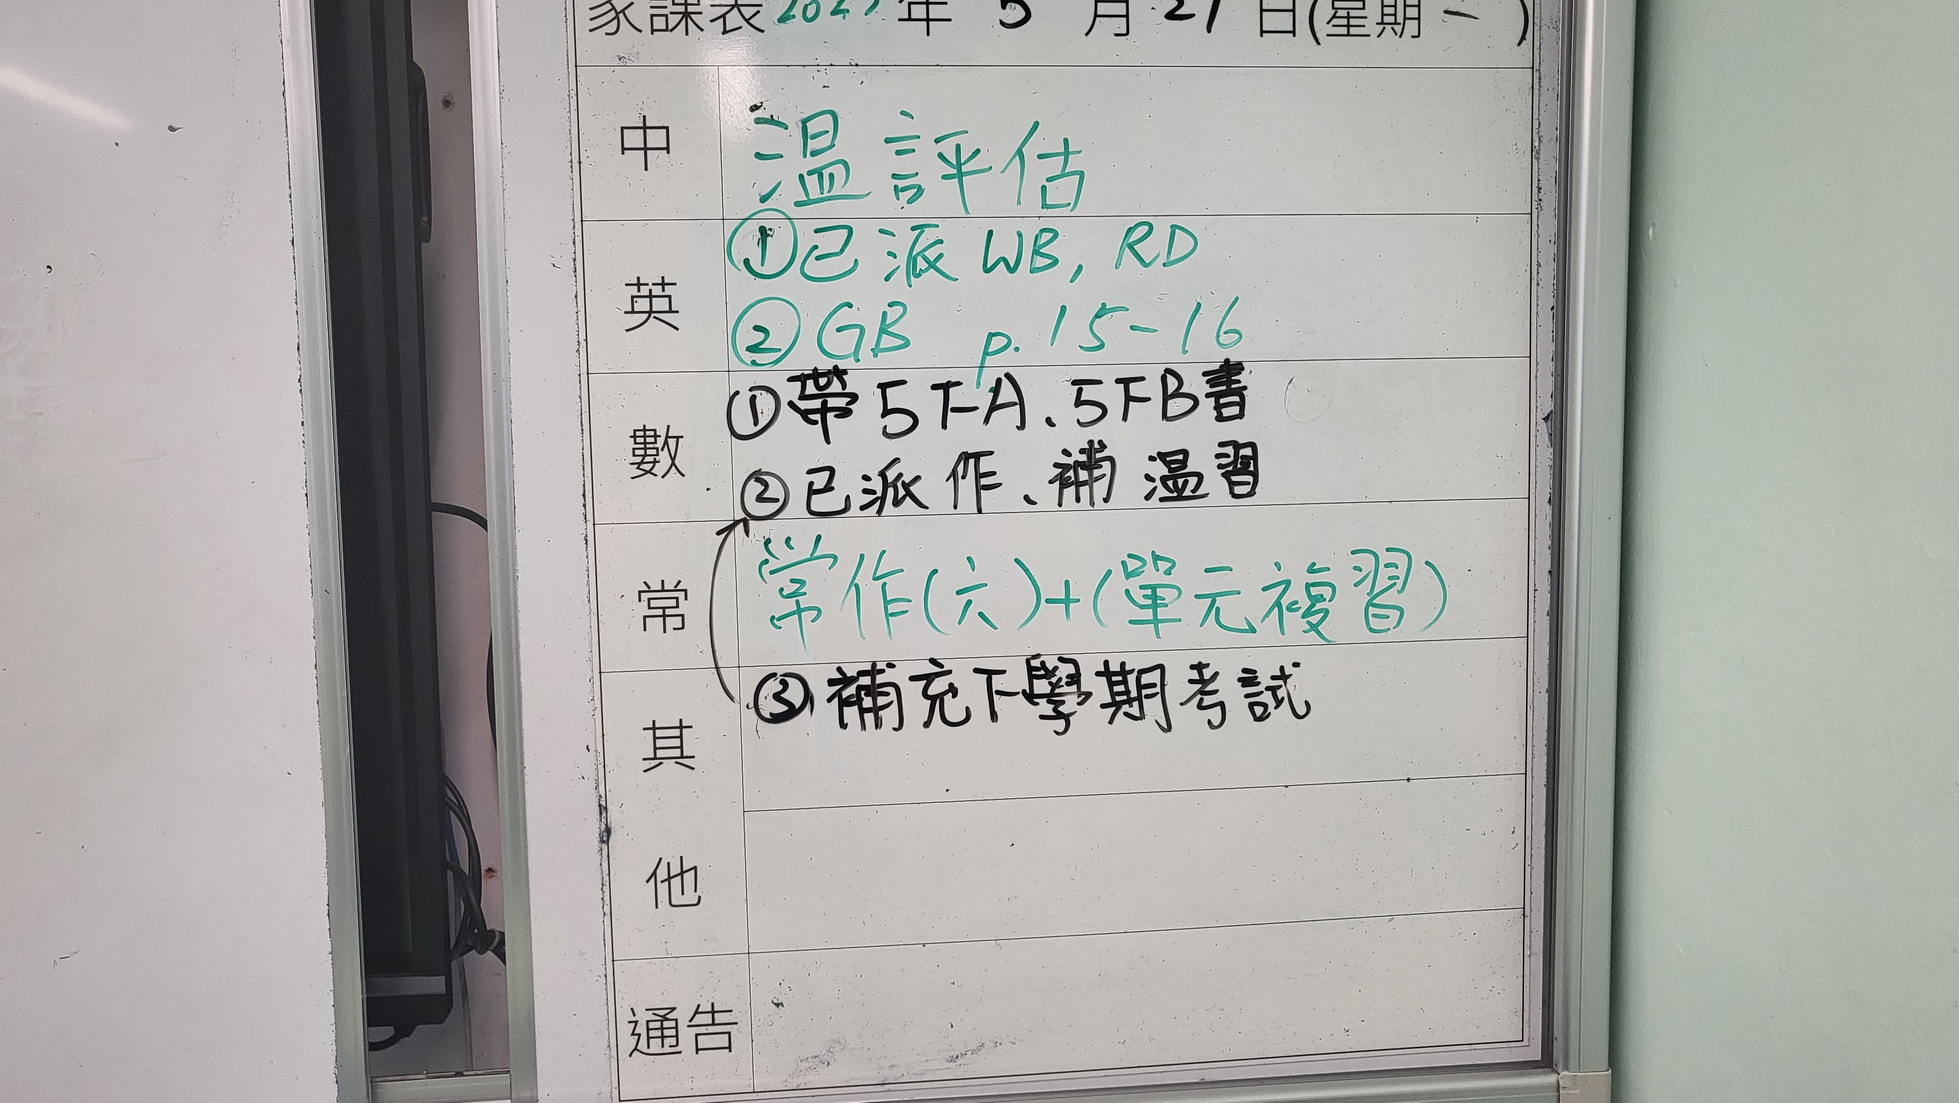 家課表 年 5 月 日(星期一)
中 温評估
英 ①已派 WB, RD
②GB p.15-16
數 ①帶5下A、5下B書
②已派作、補温習
常 常作(六)+(單元複習)
其他 ③補充下學期考試
通告